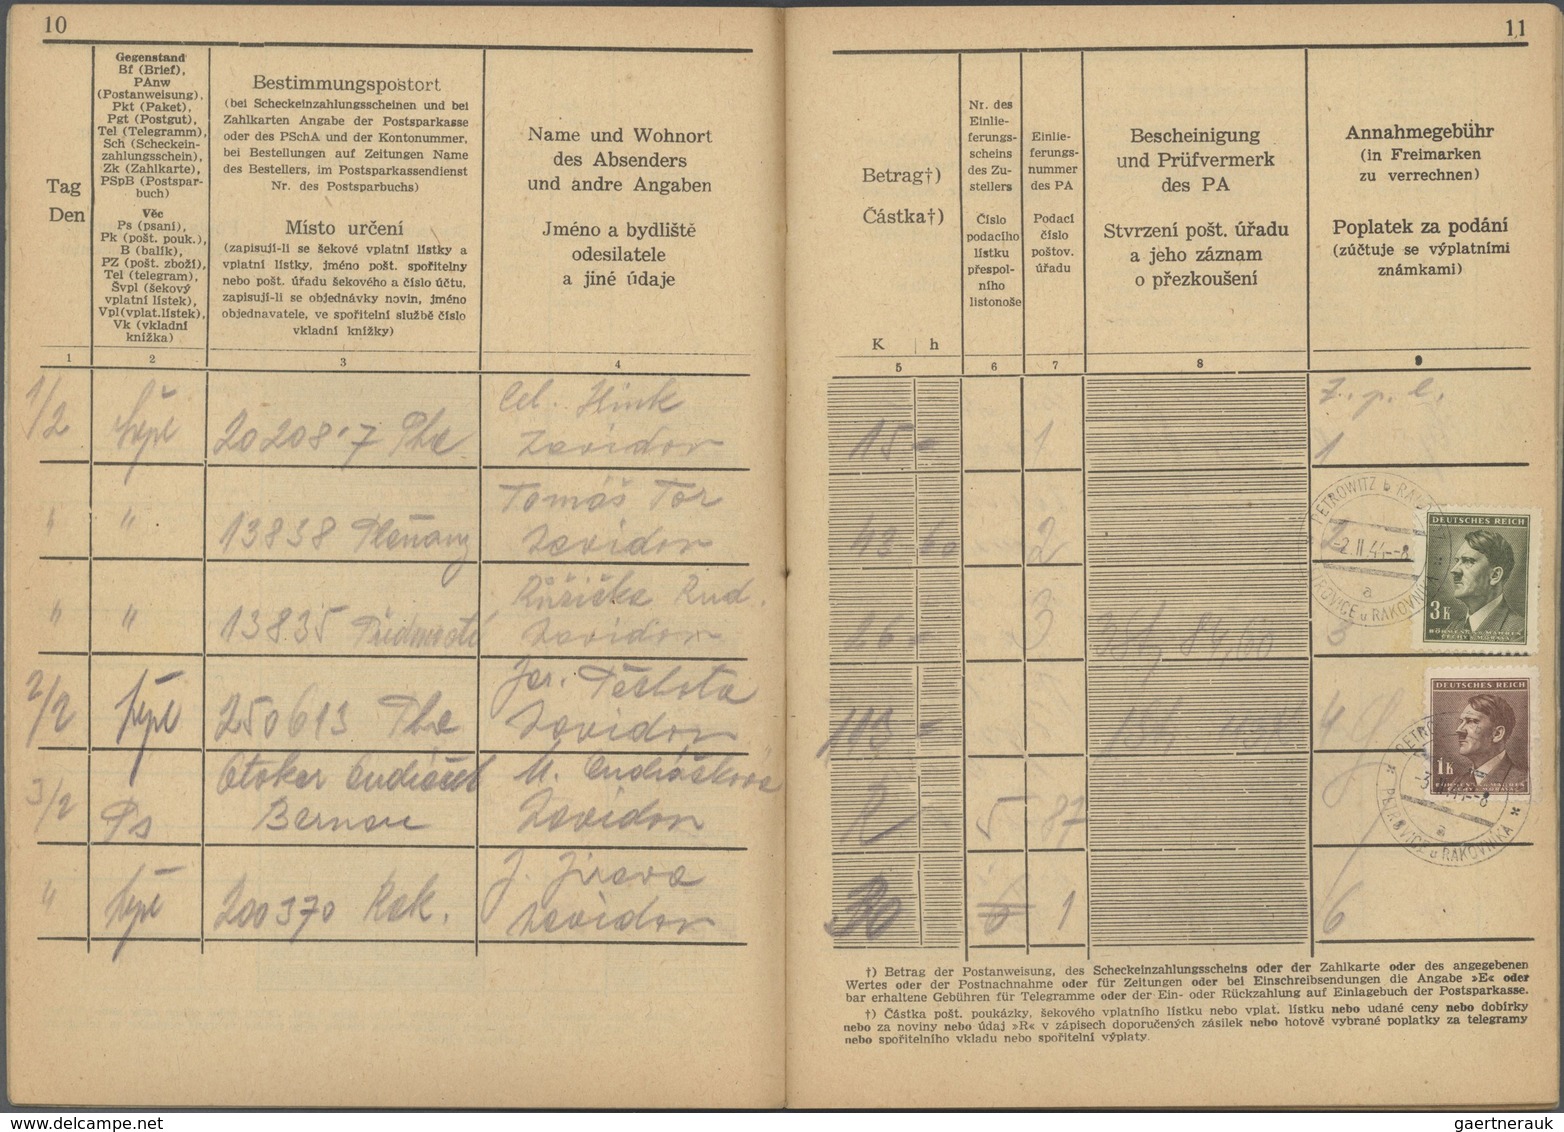 10
11
Tag
Den
Gegenstand
Bf (Brief),
PAnw
(Postanweisung),
Pkt (Paket),
Pgt (Postgut),
Tel (Telegramm),
Sch (Scheckein-
zahlungsschein),
Zk (Zahlkarte),
PSpB (Postspar-
buch)
Věc
Ps (psaní),
Pk (pošt. pouk.),
B (balík),
PZ (pošt. zboží),
Tel (telegram),
Švpl (šekový
vplatní lístek),
Vpl(vplat.lístek),
Vk (vkladní
knížka)
Bestimmungspostort
(bei Scheckeinzahlungsscheinen und bei
Zahlkarten Angabe der Postsparkasse
oder des PSchA und der Kontonummer,
bei Bestellungen auf Zeitungen Name
des Bestellers, im Postsparkassendienst
Nr. des Postsparbuchs)
Místo určení
(zapisují-li se šekové vplatní lístky a
vplatní lístky, jméno pošt. spořitelny
nebo pošt. úřadu šekového a číslo účtu,
zapisují-li se objednávky novin, jméno
objednavatele, ve spořitelní službě číslo
vkladní knížky)
Name und Wohnort
des Absenders
und andre Angaben
Jméno a bydliště
odesilatele
a jiné údaje
Betrag†)
Částka†)
K h
Nr. des
Einlie-
ferungs-
scheins
des Zu-
stellers
Číslo
podacího
lístku
přespol-
ního
listonoše
Einlie-
ferungs-
nummer
des PA
Podací
číslo
poštov.
úřadu
Bescheinigung
und Prüfvermerk
des PA
Stvrzení pošt. úřadu
a jeho záznam
o přezkoušení
Annahmegebühr
(in Freimarken
zu verrechnen)
Poplatek za podání
(zúčtuje se výplatními
známkami)
1 2 3 4 5 6 7 8 9
1/2 švpl 202087 Pha Zavidov 15 = 1 1
Tomáš Tor
" " 13838 Zavidov 43 60 2 2
Růžička Rud.
" " 13835 Zavidov 26 = 3 84,60 3
2/2 švpl 250613 Pha Jar. Těchota Zavidov 113 = 4
Otokar
3/2 Ps Zavidov R 5 87
" švpl 200370 Rak. Zavidov 1 6
PETROWITZ b RAKO
-2.II.44--8
a
ROVICE u RAKOVNÍ
DEUTSCHES REICH
3K
BÖHMEN u. MÄHREN
ČECHY a MORAVA
DEUTSCHES REICH
1K
BÖHMEN u. MÄHREN
ČECHY a MORAVA
-3.II.44--8
a
PETROVICE u RAKOVNÍKA
†) Betrag der Postanweisung, des Scheckeinzahlungsscheins oder der Zahlkarte oder des angegebenen
Wertes oder der Postnachnahme oder für Zeitungen oder bei Einschreibsendungen die Angabe »E« oder
bar erhaltene Gebühren für Telegramme oder der Ein- oder Rückzahlung auf Einlagebuch der Postsparkasse.
†) Částka pošt. poukázky, šekového vplatního lístku nebo vplat. lístku nebo udané ceny nebo dobírky
nebo za noviny nebo údaj »R« v zápisech doporučených zásilek nebo hotově vybrané poplatky za telegramy
nebo spořitelního vkladu nebo spořitelní výplaty.
gaertnerauk
www.delcampe.net